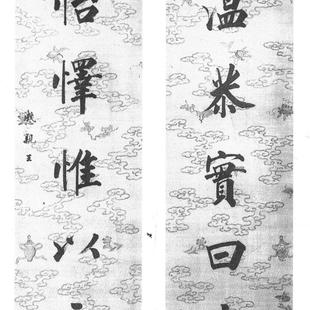 温恭實曰
怡懌惟以
親王